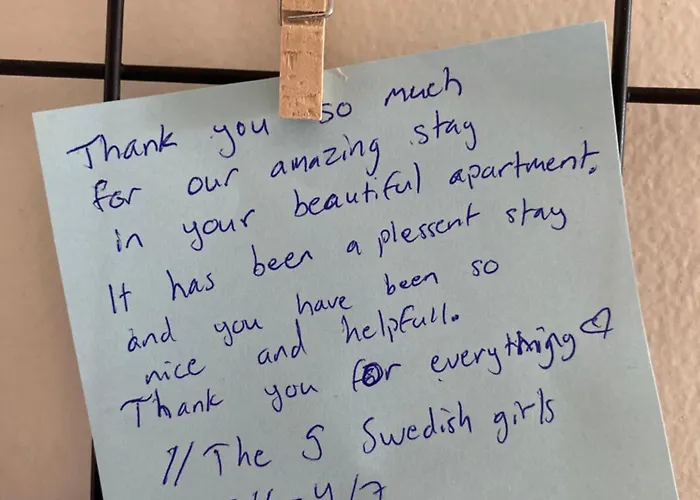 Thank you so much
for our amazing stay
in your beautiful apartment.
It has been a plessent stay
and you have been so
nice and helpfull.
Thank you for everything ♡
// The 5 Swedish girls
4/7